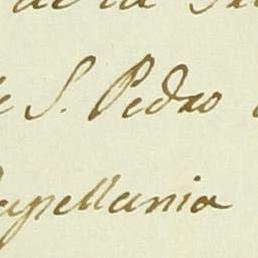 de la
S. Pedro
Capellania